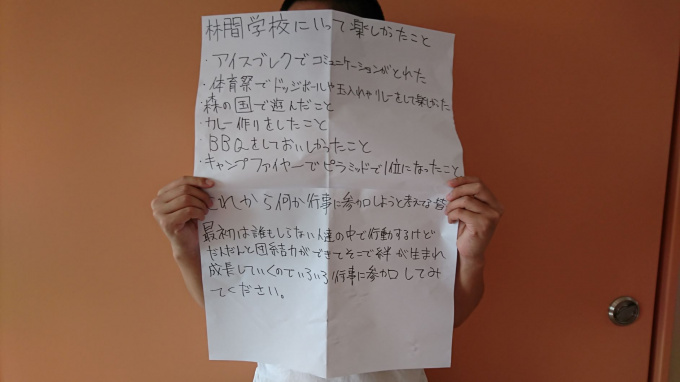 林間学校にいって楽しかったこと
・アイスブレクでコミュニケーションがとれた
・体育祭でドッジボールや玉入れやリレーをして楽しかった
・森の国で遊んだこと
・カレー作りをしたこと
・BBQをしておいしかったこと
・キャンプファイヤーでピラミッドで1位になったこと
これから何か行事に参加しようと考えな皆
最初は誰もしらない人達の中で行動するけど
だんだんと団結力ができてそこで絆が生まれ
成長していくのでいろいろ行事に参加してみ
てください。